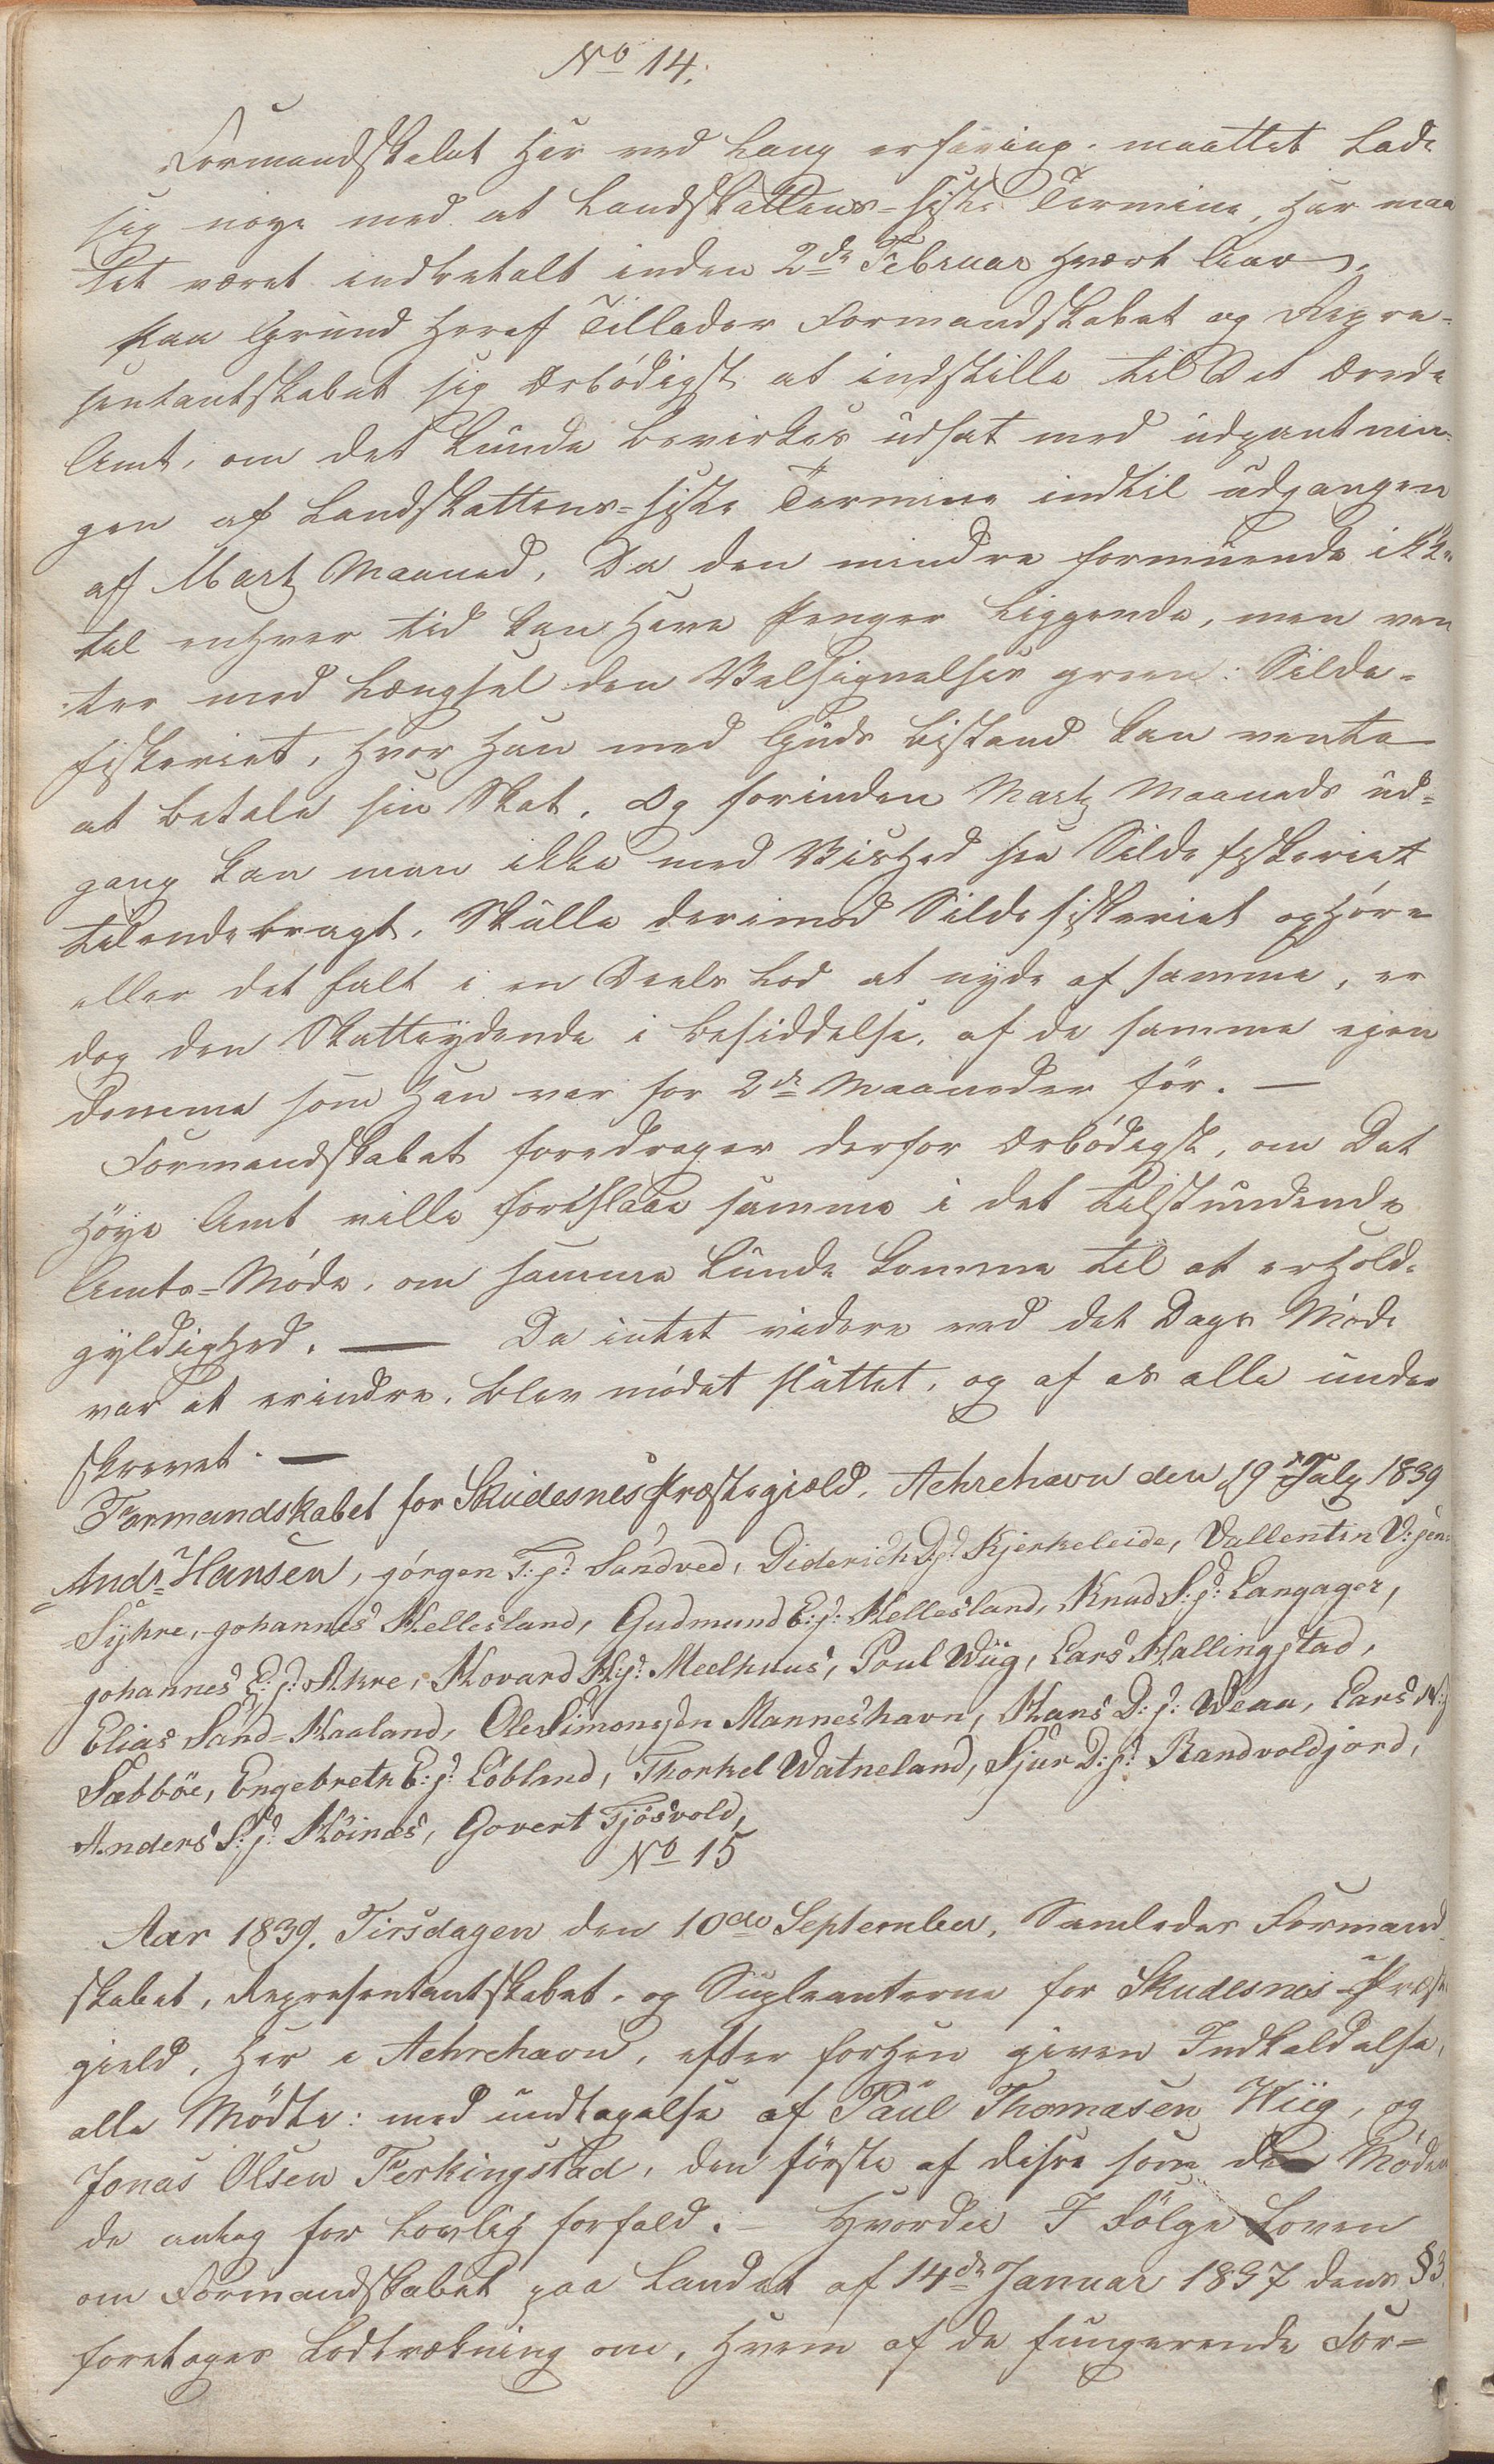 No 14.
Formandskabet har ved lang erfaring maattet lade
sig nøye med at Landskattens-siste Termine, har maa
tet været indbetalt inden 2de Februar hvært Aar,
paa Grund heraf Tillader Formandskabet og Repre-
sentantskabet sig Ærbödigst at indstille til Det Ærede
Amt, om det kunde bevirkes udsat med udpantnin-
gen af Landskattens-siste Termine indtil udgangen
af Martz Maaned, Da den mindre formuende ikke
til enhver tid kan have Penger liggende, men ven
ter med Længsel den Velsignelses green: Silde-
fiskeriet, hvor han med Guds bistand kan vente
at betale sin Skat. Og forinden Martz Maaneds ud-
gang kan man ikke med Vished see Silde fiskeriet
tilendebragt. Skulle derimod Silde fiskeriet ophøre
eller det falt i en Deels Lod at nyde af samme, er
dog den Skatteydende i besiddelse, af de samme ejen
domme som han var for 2de Maaneder för. —
Formandskabet foredrager derfor Ærbödigst, om Det
høye Amt ville foreslaae samme i det tilstundende
Amts-Möde, om samme kunde komme til at erholde
gyldighed. — Da intet videre ved det Dags Möde
var at erindre, blev mødet sluttet, og af os alle under
skrevet. —
Formandskabet for Skudesnes Præstegiæld, Aehrehavn den 19de July 1839
Andr Hansen, Jörgen T:s: Sandved, Diderich D:s: Kjerkeleide, Vallentin V:sen:
-Syhre, Johannes Hellesland, Gudmund E:s: Hellesland, Knud S:s: Langager,
Johannes E:s: Ahre, Hovard H:s: Meelhuus, Poul Wiig, Lars Hallingstad,
Elias Sand-Haaland, Ole Simonsen Manneshavn, Hans D:s: Weaa, Lars N:s:
Sæbböe, Engebreth E:s: Löbland, Thorkel Watneland, Sjur D:s: Randvoldjord,
Anders S:s: Höines, Govert Tjösvold,
No 15
Aar 1839. Tirsdagen den 10de September, Samledes Formand
skabet, Representantskabet, og Supleanterne for Skudesnes Præste
gield, her i Aehrehavn, efter forhen given Indkaldelse,
alle Mödte: med undtagelse af Paul Thomasen Wiig, og
Jonas Olsen Ferkingstad, den förste af disse som de Möden
de antog for Lovlig forfald. — Hvorda I Fölge Loven
om Formandskabet paa Landet af 14de Januar 1837 dens §3
foretages Lodtrækning om, hvem af de fungerende For-